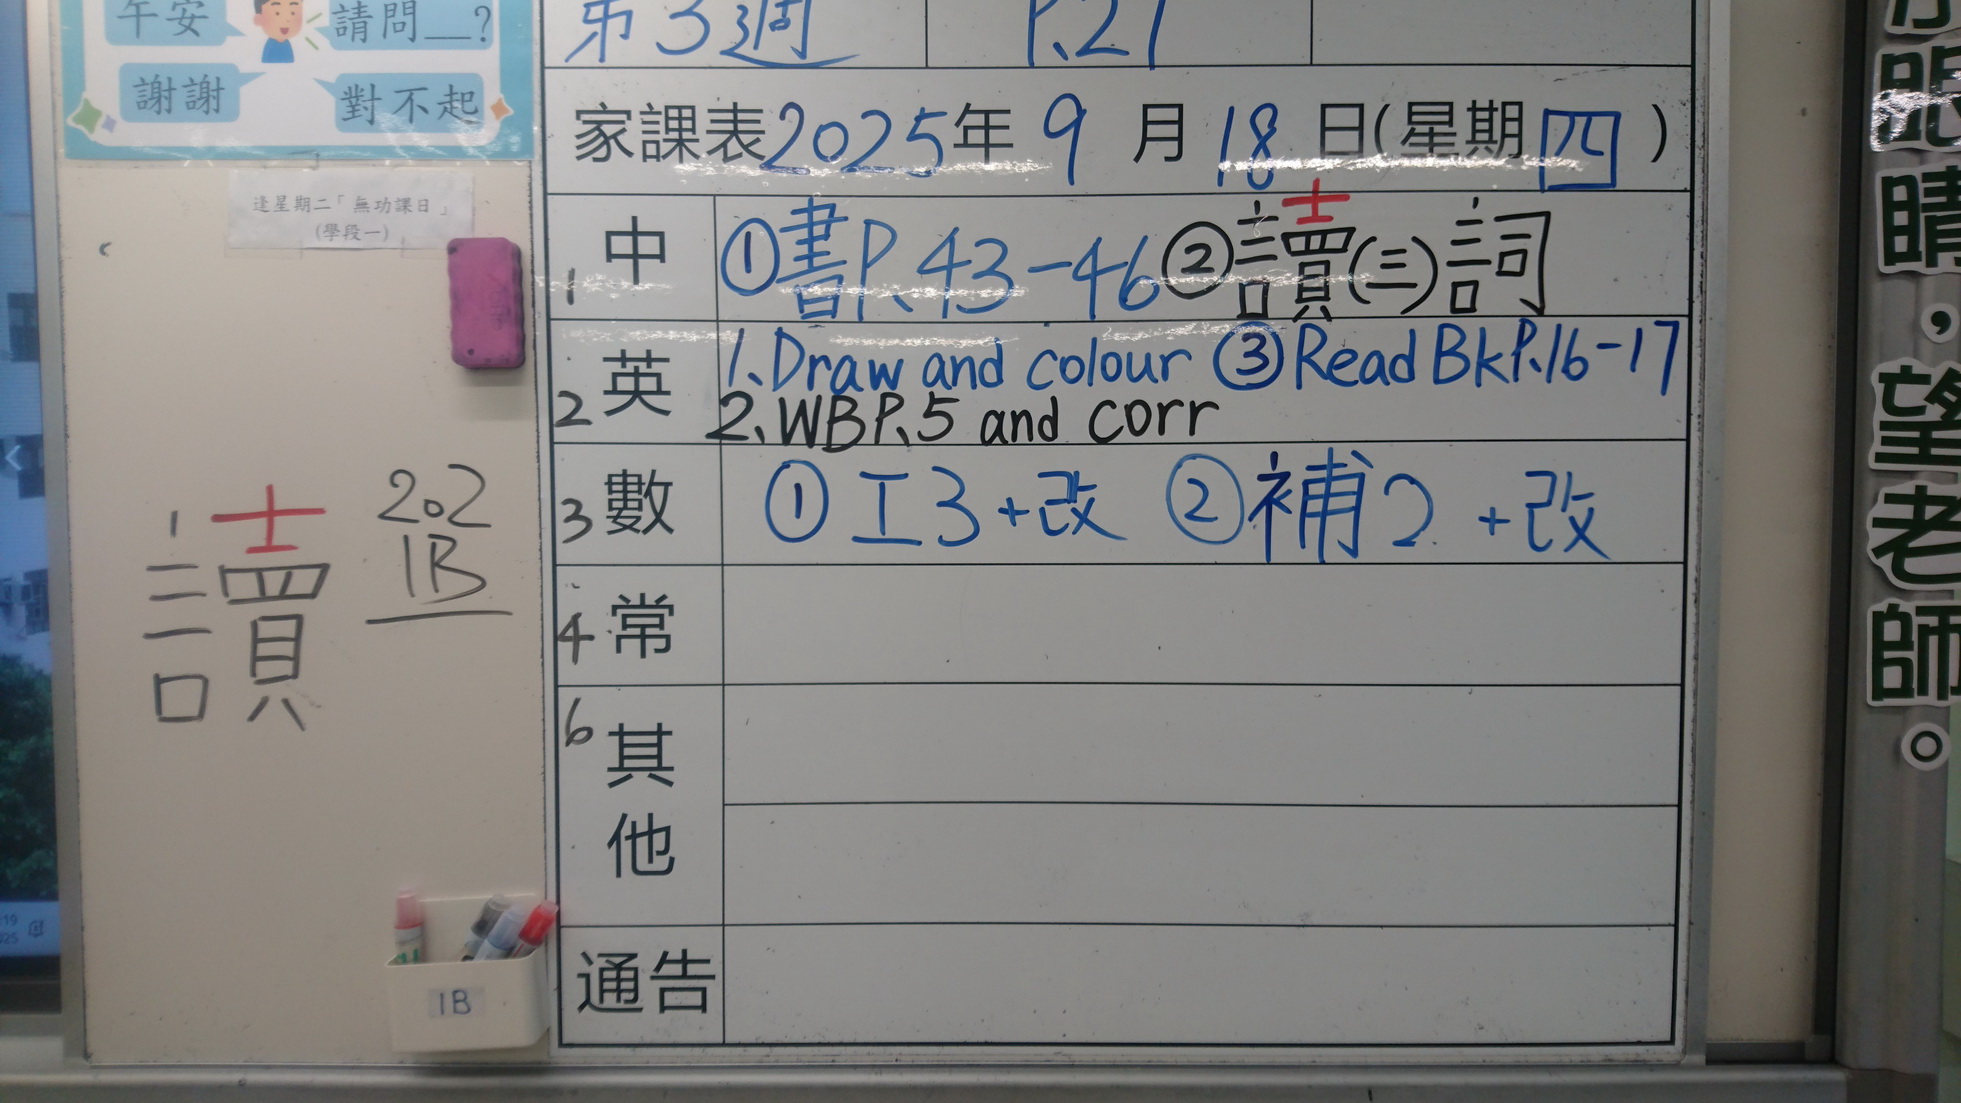 午安
請問__?
謝謝
對不起
逢星期二「無功課日」
(學段一)
第3週 P.21
家課表2025年9月18日(星期四)
1 中 ①書P.43-46②讀(三)詞
2 英 1.Draw and colour ③Read BkP.16-17
2.WBP.5 and corr
3 數 ①工3+改 ②補2+改
4 常
6 其他
通告
讀
202
1B
1B
眼睛，望老師。